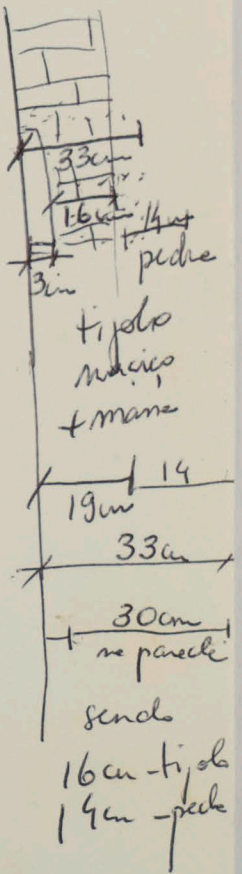 33cm
16cm
14cm
pedra
3cm
tijolo
maciço
+ massa
14
19cm
33cm
30cm
na parede
sendo
16cm - tijolo
14cm - pedra